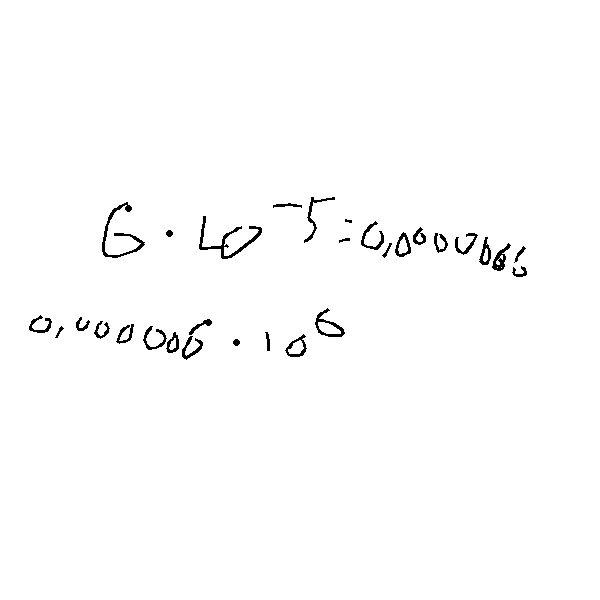 6 · 10^-5 = 0,0000066
0,0000006 · 10^6